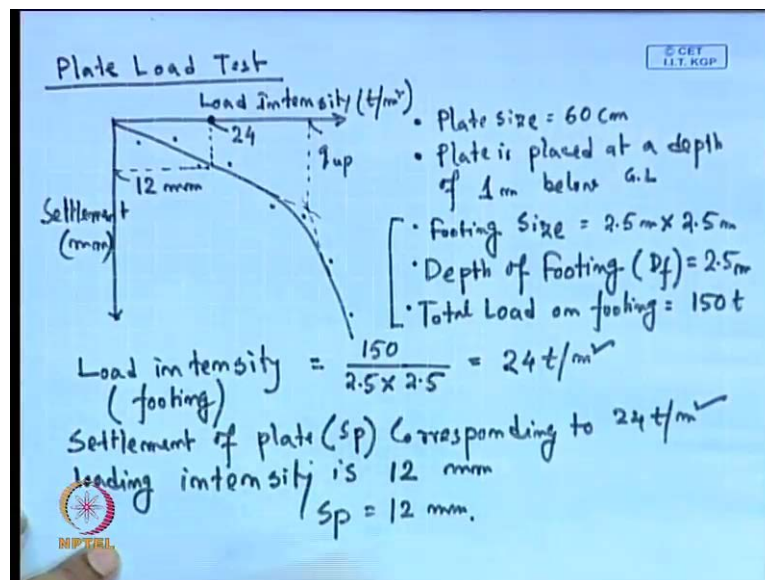 © CET
I.I.T. KGP
Plate Load Test
Load Intensity (t/m²)
24
12 mm
qup
Settlement
(mm)
• Plate size = 60 cm
• Plate is placed at a depth
of 1 m below G.L
• Footing Size = 2.5 m × 2.5 m
• Depth of Footing (Df) = 2.5 m
• Total Load on footing = 150 t
Load intensity = 150 / 2.5 × 2.5 = 24 t/m²
(footing)
Settlement of plate (Sp) Corresponding to 24 t/m²
loading intensity is 12 mm
Sp = 12 mm.
NPTEL